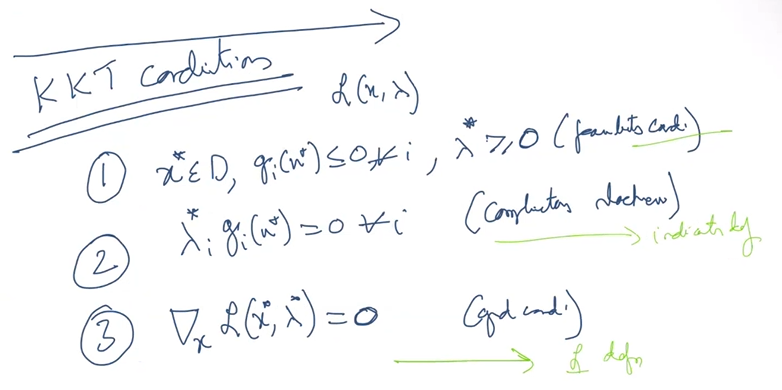 KKT conditions
L(x, λ)
① x* ∈ D, gᵢ(x*) ≤ 0 ∀ i, λ* ≥ 0 (feasibility cond.)
② λᵢ* gᵢ(x*) = 0 ∀ i (Complementary slackness)
③ ∇ₓ L(x*, λ*) = 0 (grad condi)
L defn